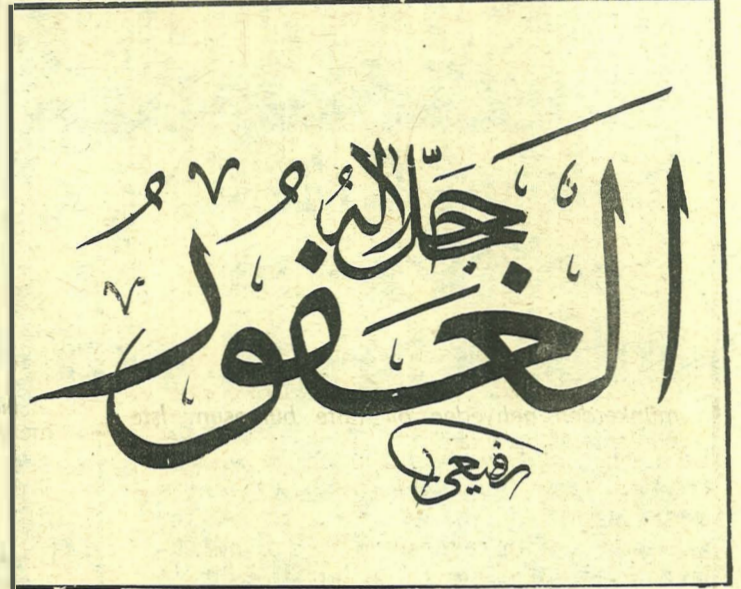 الغَفُورُ
جَلَّ جلالهُ
رفيعى